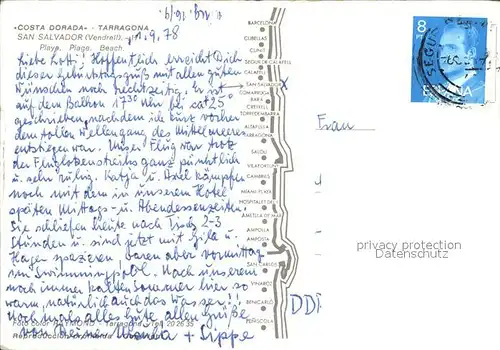 «COSTA DORADA» - TARRAGONA
SAN SALVADOR (Vendrell)
Playa. Plage. Beach.
1.9.78
Liebe Lotti! Hoffentlich erreicht Dich
dieser Geburtstagsgruß mit allen guten
Wünschen noch rechtzeitig. Er ist
auf dem Balkon 17³⁰ Uhr bei 25°
geschrieben, nachdem ich kurz vorher
dem tollen Wellengang des Mittelmeeres
entstiegen war. Unser Flug war trotz
der Fluglotsenstreiks ganz pünktlich
u. sehr ruhig. Katja u. Axel kämpfen
noch mit dem in unserem Hotel
späten Mittags- u. Abendessenzeiten.
Sie schliefen heute nach Tisch 2-3
Stunden u. sind jetzt mit Gila u.
spazieren, waren aber vormittag
im Swimmingpool. Nach unserem
noch immer kalten Sommer hier so
warm, natürlich auch das Wasser!
Nochmals alles Gute, allen Grüße
von + Sippe
BARCELONA
CUBELLAS
CUNIT
SEGUR DE CALAFELL
CALAFELL
SAN SALVADOR X
COMARRUGA
BARA
CREIXELL
TORREDEMBARRA
ALTAFULLA
TARRAGONA
SALOU
VILAFORTUNY
CAMBRILS
MIAMI PLAYA
HOSPITALET
AMETLLA DE MAR
AMPOLLA
AMPOSTA
SAN CARLOS
VINAROZ
BENICARLO
PEÑISCOLA
8
PTA
ESPAÑA
Frau
DDR
privacy protection
Datenschutz
Foto color RAYMOND - Tarragona - Tel. 20 26 35